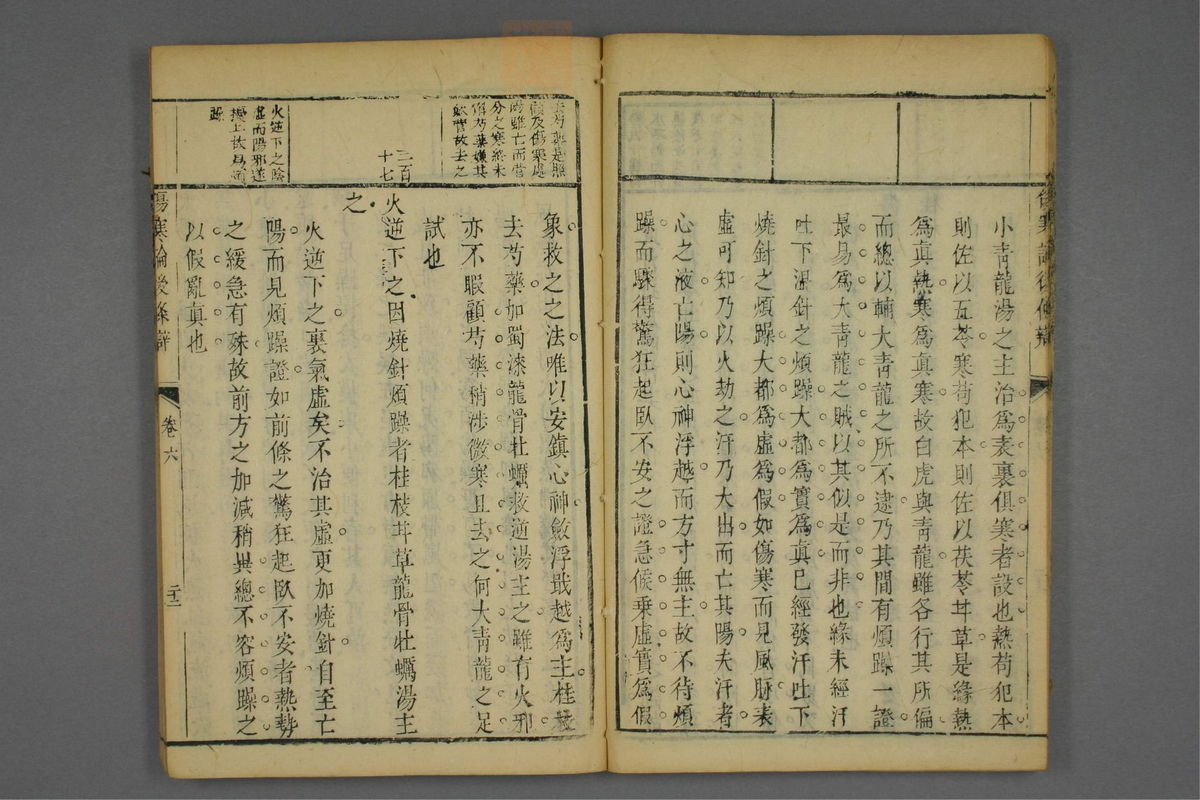 小青龍湯之主治為表裏俱寒者設也熱苟犯本
則佐以五苓寒苟犯本則佐以茯苓甘草是緣熱
為眞熱寒為眞寒故白虎與青龍雖各行其所偏
而總以輔大青龍之所不逮乃其間有煩躁一證
最易為大青龍之賊以其似是而非也緣未經汗
吐下溫針之煩躁大都為實為真已經發汗吐下
燒針之煩躁大都為虛為假如傷寒而見風脉表
虛可知乃以火劫之汗乃大出而亡其陽夫汗者
心之液亡陽則心神浮越而方寸無主故不待煩
躁而騤得驚狂起臥不安之證急候乗虛實為假
去芍藥是照
顧及傷寒處
陽雖亡而營
分之寒終未
解芍藥嫌其
斂營故去之
象救之之法唯以安鎮心神斂浮戢越為主桂枝
去芍藥加蜀漆龍骨牡蠣救逆湯主之雖有火邪
亦不暇顧芍藥稍涉微寒且去之何大青龍之足
試也
二百
十七
火逆下之因燒針煩躁者桂枝甘草龍骨牡蠣湯主
之
火逆下之陰
虛而陽邪逆
擾上故爲煩
躁
火逆下之裏氣虛矣不治其虛更加燒針自至亡
陽而見煩躁證如前條之驚狂起臥不安者熱勢
之緩急有殊故前方之加減稍異總不容煩躁之
以假亂真也
傷寒論後條辯
卷六